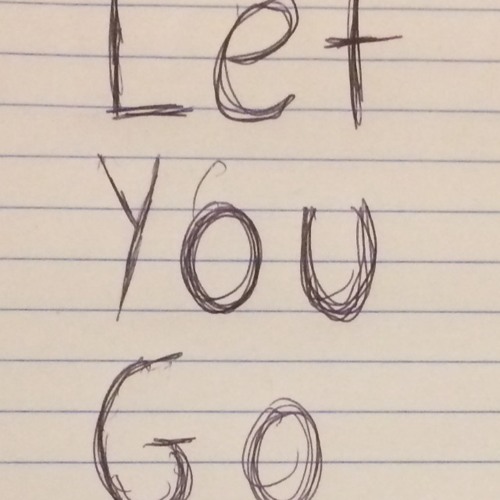 Let
You
Go